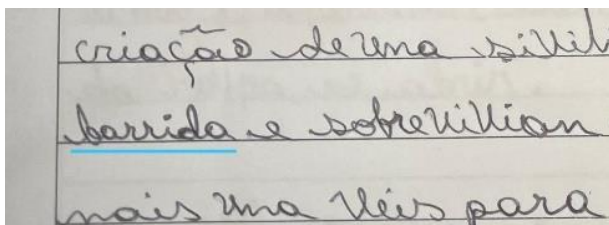 criação de uma sivil
barrida e sobrevivian
mais uma véis para